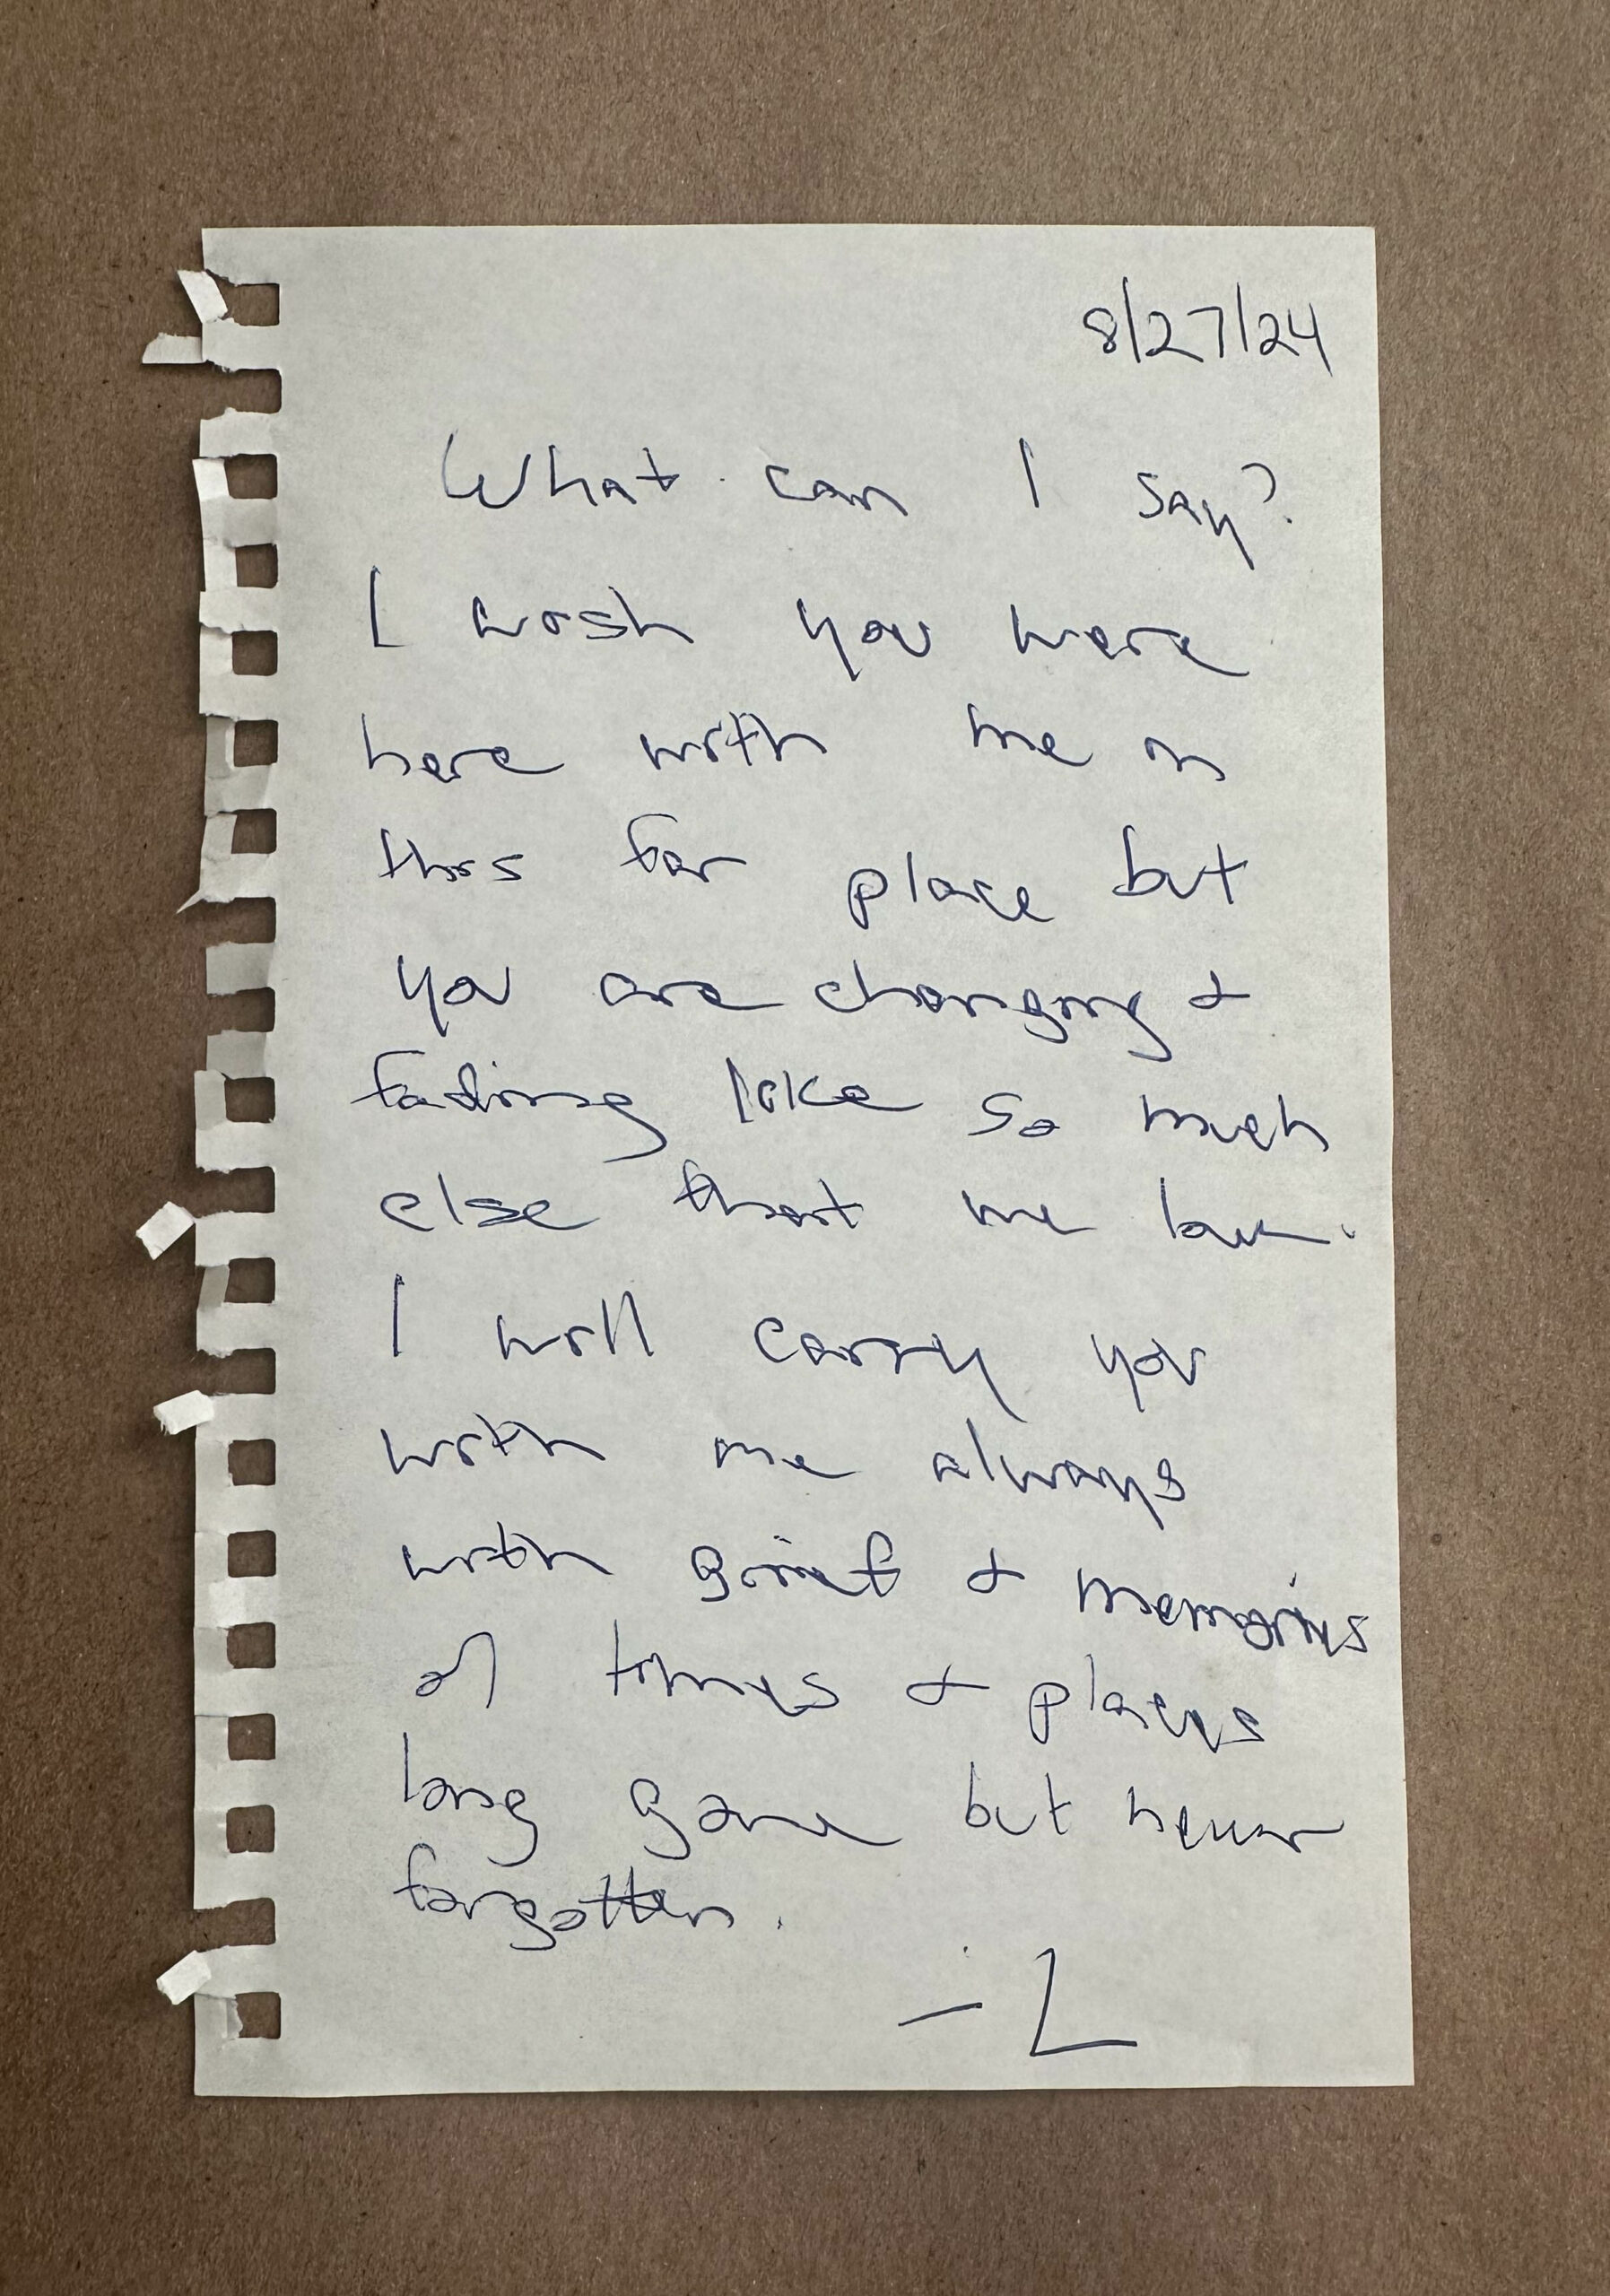 8/27/24
What can I say?
I wish you were
here with me in
this far place but
you are changing &
fading like so much
else that we love.
I will carry you
with me always
with grief & memories
of times & places
long gone but never
forgotten.
-L